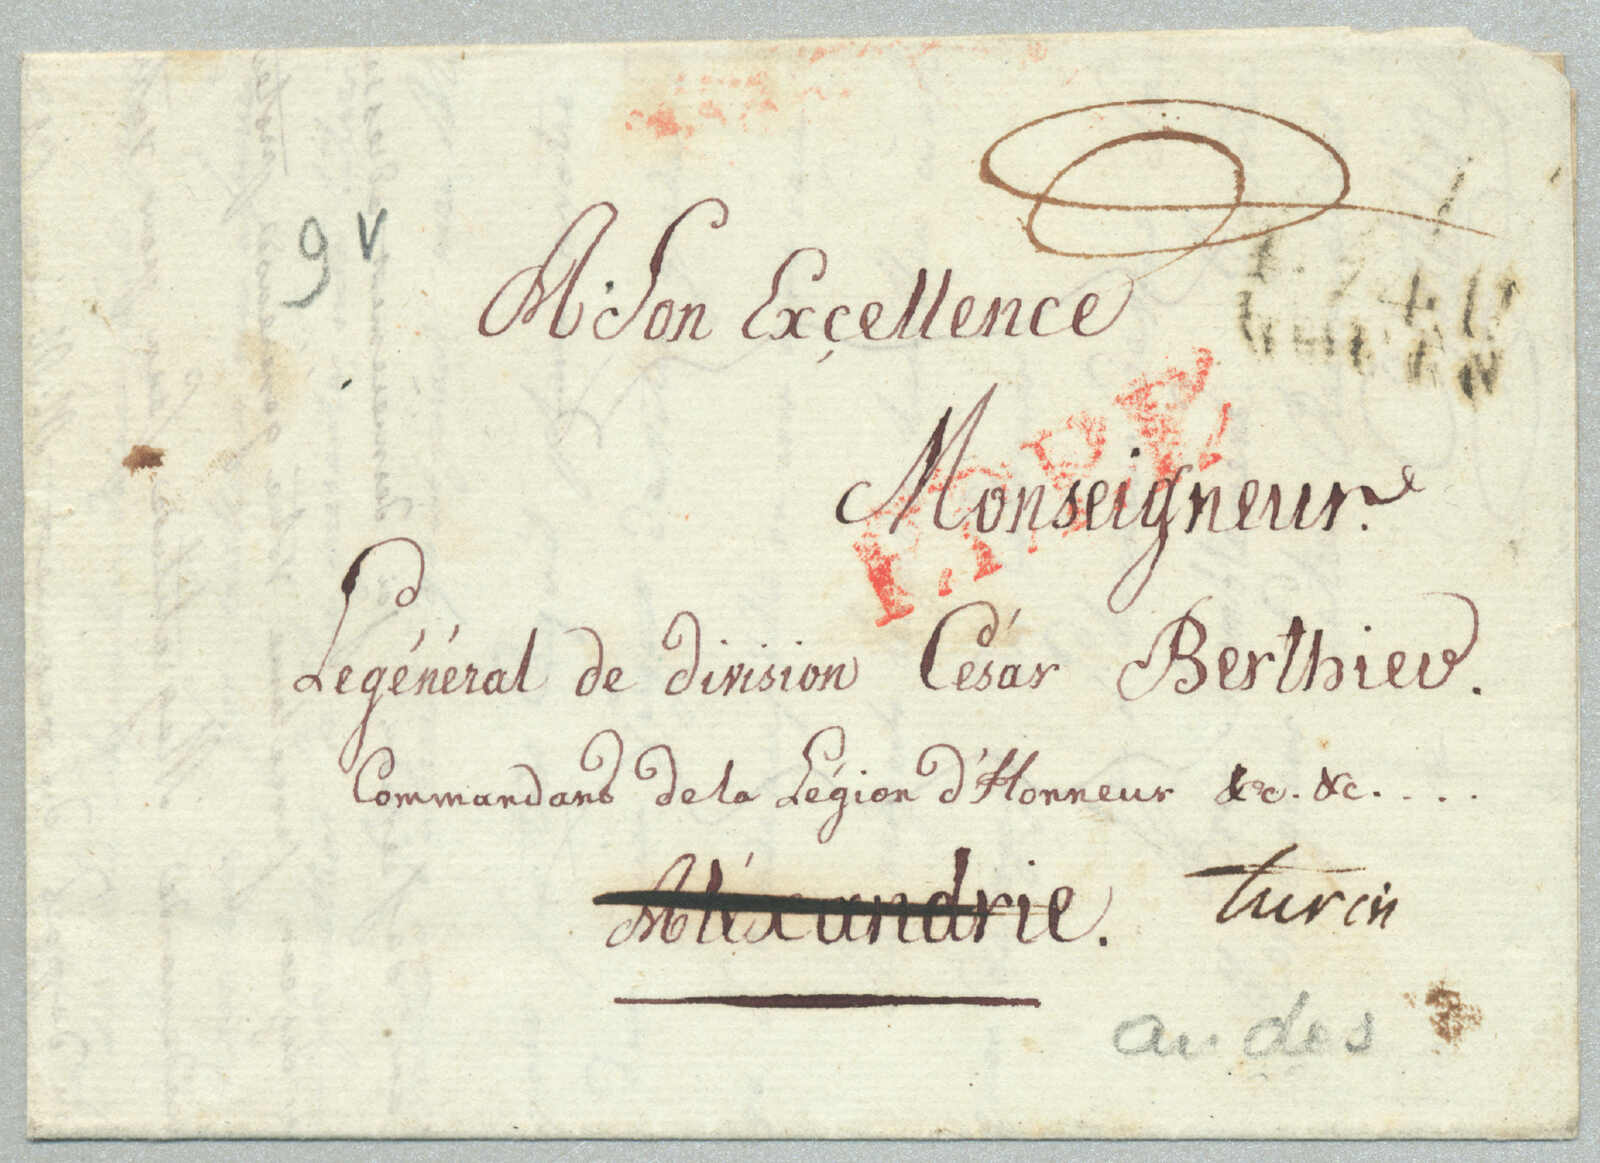 9 v
A Son Exçellence
Monseigneur.
Le général de division César Berthier.
Commandant de la Légion d'Honneur &c. &c. . . .
Aléxandrie. turin